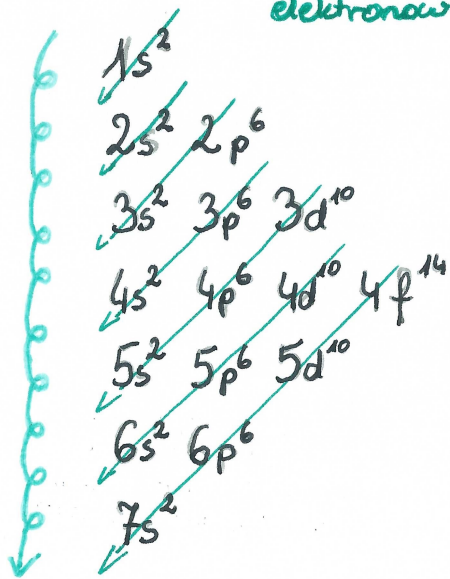 elektronow
1s²
2s² 2p⁶
3s² 3p⁶ 3d¹⁰
4s² 4p⁶ 4d¹⁰ 4f¹⁴
5s² 5p⁶ 5d¹⁰
6s² 6p⁶
7s²